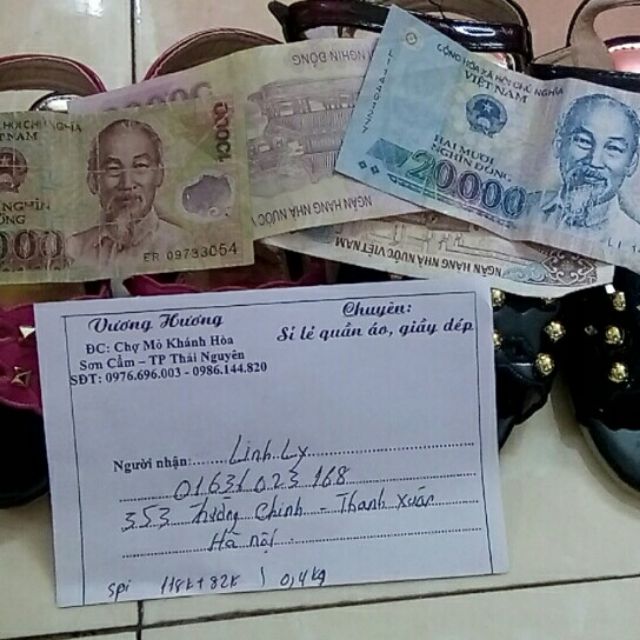 CỘNG HÒA XÃ HỘI CHỦ NGHĨA
VIỆT NAM
HAI MƯƠI
NGHÌN ĐỒNG
20.000
NGHÌN ĐỒNG
NGÂN HÀNG NHÀ NƯỚC
NGÂN HÀNG NHÀ NƯỚC VIỆT NAM
10000
ER 09733054
Vương Hương
ĐC: Chợ Mỏ Khánh Hòa
Sơn Cẩm - TP Thái Nguyên
SĐT: 0976.696.003 - 0986.144.820
Chuyên:
Sỉ lẻ quần áo, giầy dép
Người nhận: Linh Ly
01631 023 168
353 Trường Chinh - Thanh Xuân
Hà nội
spi 118k+82k | 0,4kg